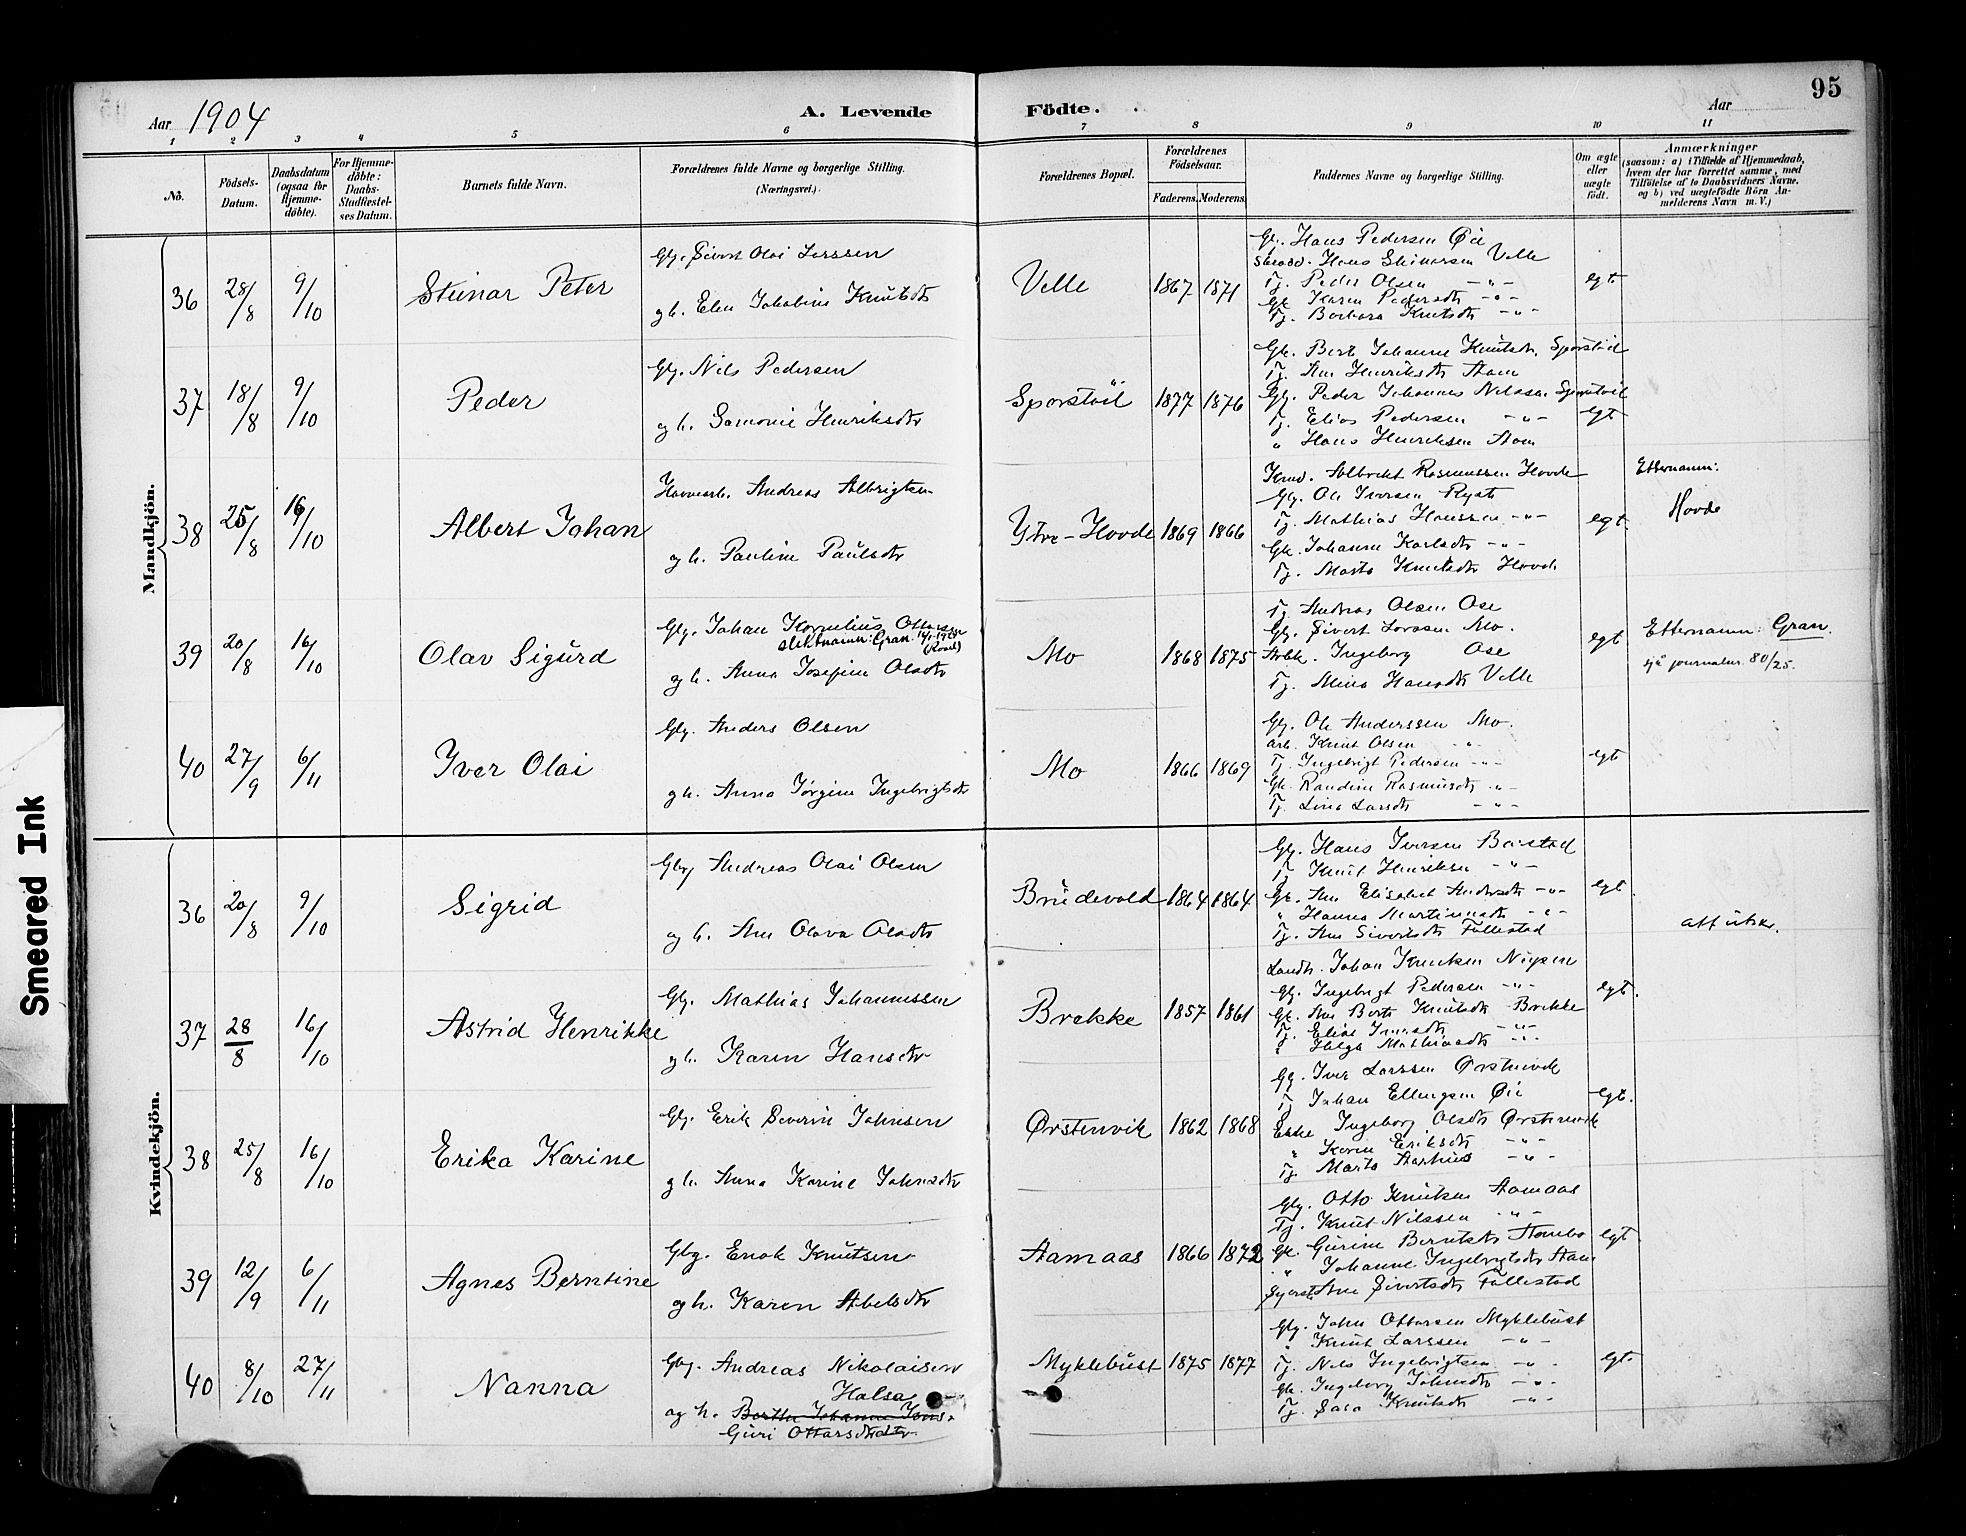 95
Aar 1904
A. Levende Födte.
Aar
1 2 3 4 5 6 7 8 9 10 11
No.
Födsels-Datum.
Daabsdatum (ogsaa for Hjemmedöbte).
For Hjemmedöbte: Daabs-Stadfæstelses Datum.
Barnets fulde Navn.
Forældrenes fulde Navne og borgerlige Stilling. (Næringsvei.)
Forældrenes Bopæl.
Forældrenes Födselsaar.
Faderens. Moderens.
Faddernes Navne og borgerlige Stilling.
Om ægte eller uægte födt.
Anmærkninger
(saasom: a) i Tilfælde af Hjemmedaab, hvem der har forrettet samme, med Tilföielse af to Daabsvidners Navne, og b) ved uægtefödte Börn Anmelderens Navn m. V.)
Mandkjön.
36 28/8 9/10 Steinar Peter
Gbg. Sivert Olai Larssen
g h. Elen Jakobine Knutsdtr
Velle 1867 1871
Gb. Hans Pedersen Øie
Hans Steinarsen Velle
Tj. Peder Olsen -"-
Gk. Karen Pedersdtr -"-
Tj. Barbara Knutsdtr -"-
egt.
37 18/8 9/10 Peder
Gbg. Nils Pedersen
og h. Samonie Henriksdtr
Sporstöil 1877 1876
Gk. Berte Johanne Knutsdtr. Sporstöil
Tj. Ane Henriksdtr Aam
Gbg. Peder Johannes Nilssen Sporstöil
Tj. Elias Pedersen -"-
" Hans Henriksen Aam
egt.
38 25/8 16/10 Albert Johan
Andreas Albrigtsen
og h. Pauline Paulsdtr
Ytre-Hovde 1869 1866
Albrekt Rasmussen Hovde
Gbg. Ole Iversen Ryste
Tj. Mathias Hanssen -"-
Gk. Johanne Karlsdtr -"-
Tj. Marta Knutsdtr Hovde
egt.
Etternamn:
Hovde
39 20/8 16/10 Olav Sigurd
Gbg. Johan Kornelius Ottarsen
slektnamn: Gran.
og h. Anna Josefine Olsdtr
Mo 1868 1875
Tj. Andreas Olsen Ose
Gbg. Sivert Larssen Mo.
Ingeborg Ose
Tj. Mina Hansdtr Velle
egt
Etternamn: Gran.
sjå journalnr. 80/25.
40 27/9 6/11 Iver Olai
Gbg. Anders Olsen
g h. Anna Jørgine Ingebrigtsdtr
Mo 1866 1869
Gbg. Ole Anderssen Mo.
arb. Knut Olsen -"-
Tj. Ingebrigt Pedersen -"-
Gk. Randine Rasmusdtr -"-
Tj. Lina Larsdtr -"-
egt
Kvindekjön.
36 20/8 9/10 Sigrid
Gbg Andreas Olai Olsen
og h. Ane Olava Olsdtr
Brudevold 1864 1864
Gbg. Hans Iversen Barstad
Tj Knut Henriksen -"-
Gk. Ane Elisabet Andersdtr -"-
" Hanna Martinusdtr -"-
Tj. Ane Sivertsdtr Follestad
egt.
att utskr.
37 28/8 16/10 Astrid Henrikke
Gbg. Mathias Johannessen
g h. Karen Hansdtr
Brekke 1857 1861
Johan Knutsen
Gbg. Ingebrigt Pedersen -"-
Gk. Ane Berte Knutsdtr Brekke
Tj. -"-
" Helga Mathiasdtr -"-
egt.
38 25/8 16/10 Erika Karine
Gbg. Erik Severin Johnsen
g h. Anna Karine Johnsdtr
Ørstenvik 1862 1868
Gbg. Iver Larssen Ørstenvik
Tj Johan Ellingsen Øie
Enke Ingeborg Olsdtr Ørstenvik
" Karen Eriksdtr -"-
Tj. Marta Aarhus -"-
egt.
39 12/9 6/11 Agnes Berntine
Gbg. Enok Knutsen
og h. Karen Abelsdtr
Aamaas 1866 1872
Gbg. Otto Knutsen Aamaas
Tj. Knut Nilssen -"-
Gk. Gurine Berntsdtr
" Johanne Ingebrigtsdtr Aam
Ane Sivertsdtr Follestad
egt
40 8/10 27/11 Nanna
Gbg. Andreas Nikolaisen
Halsa
og h. Berthe Johanne Jons-
Guri Ottarsdtr
Myklebust 1875 1877
Gbg. John Ottarsen Myklebust
" Knut Larssen -"-
Tj. Nils Ingebrigtsen -"-
Gk. Ingeborg Johnsdtr -"-
Tj. Sara Knutsdtr -"-
egt.
Smeared Ink